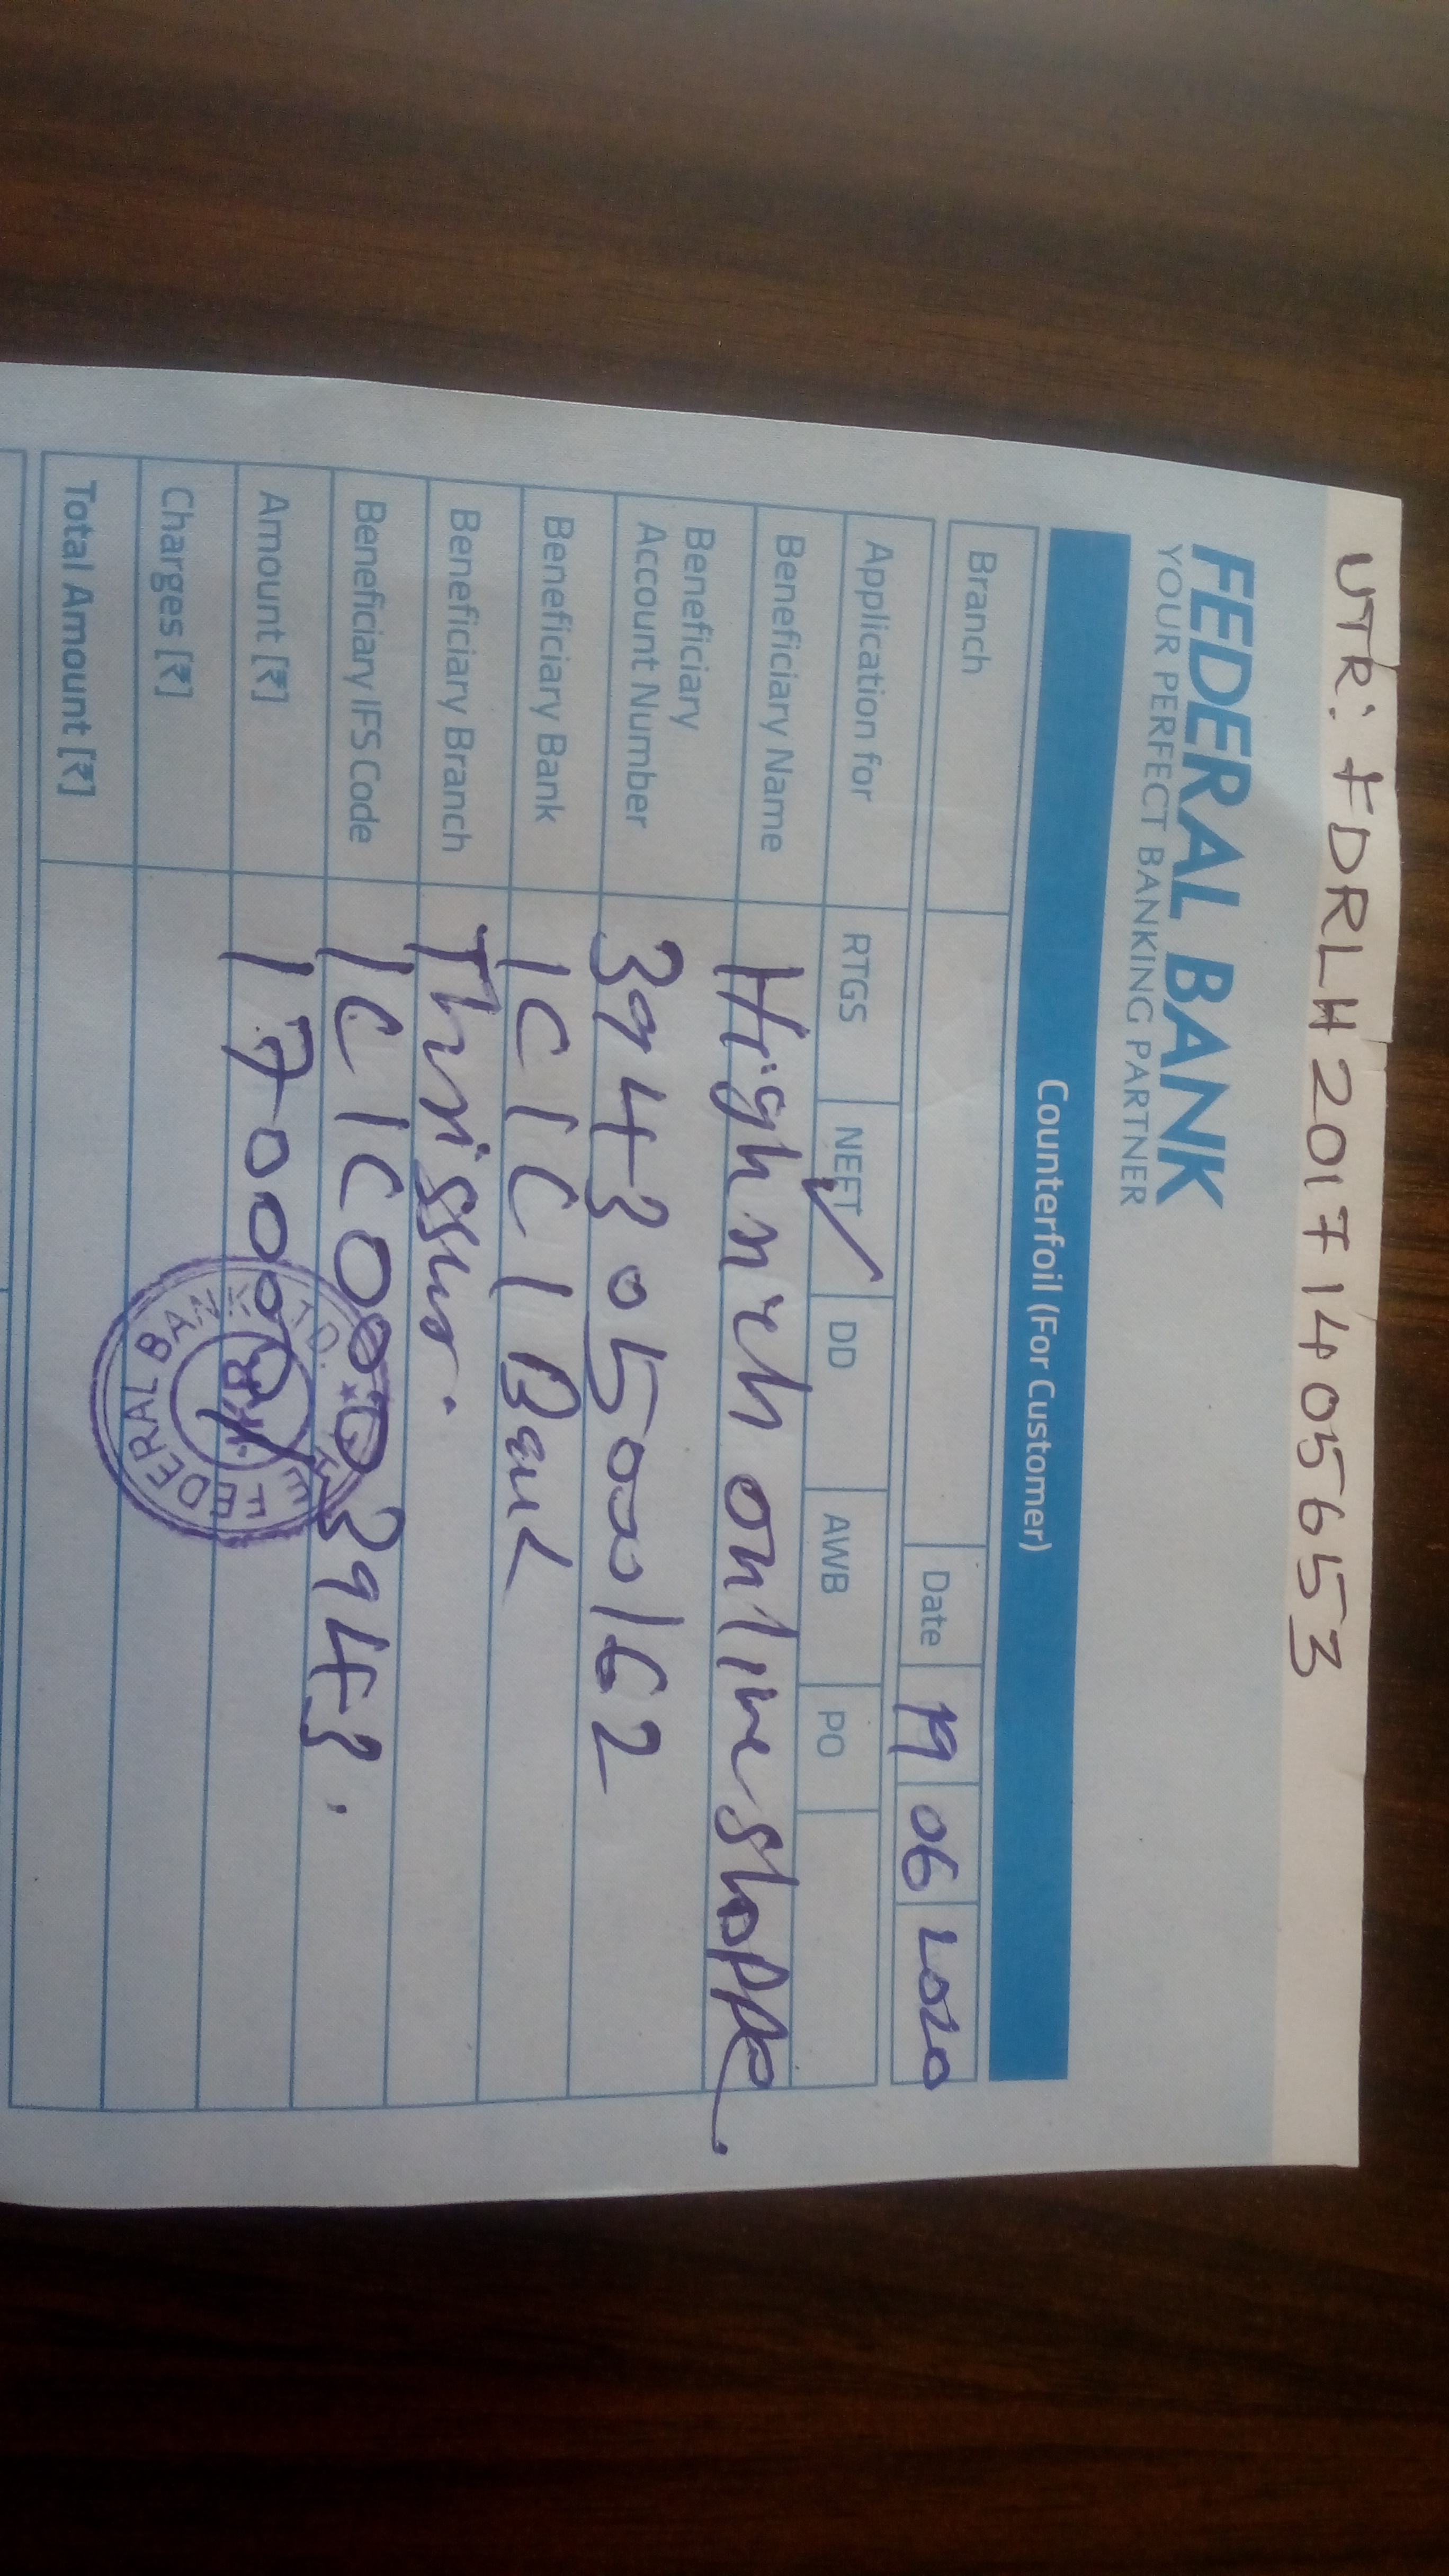 UTR: FDRLH20171405653
FEDERAL BANK
YOUR PERFECT BANKING PARTNER
Counterfoil (For Customer)
Branch Date 19 06 2020
Application for RTGS NEFT DD AWB PO
Beneficiary Name Highrich online shoppe
Beneficiary
Account Number 394305000162
Beneficiary Bank ICICI Bank
Beneficiary Branch Thrissur.
Beneficiary IFS Code ICIC0003943.
Amount [₹] 17000
Charges [₹]
Total Amount [₹]
FEDERAL BANK LTD.